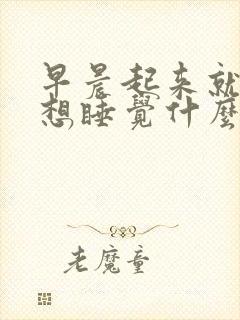 早晨起来就
想睡觉什麼
老魔童